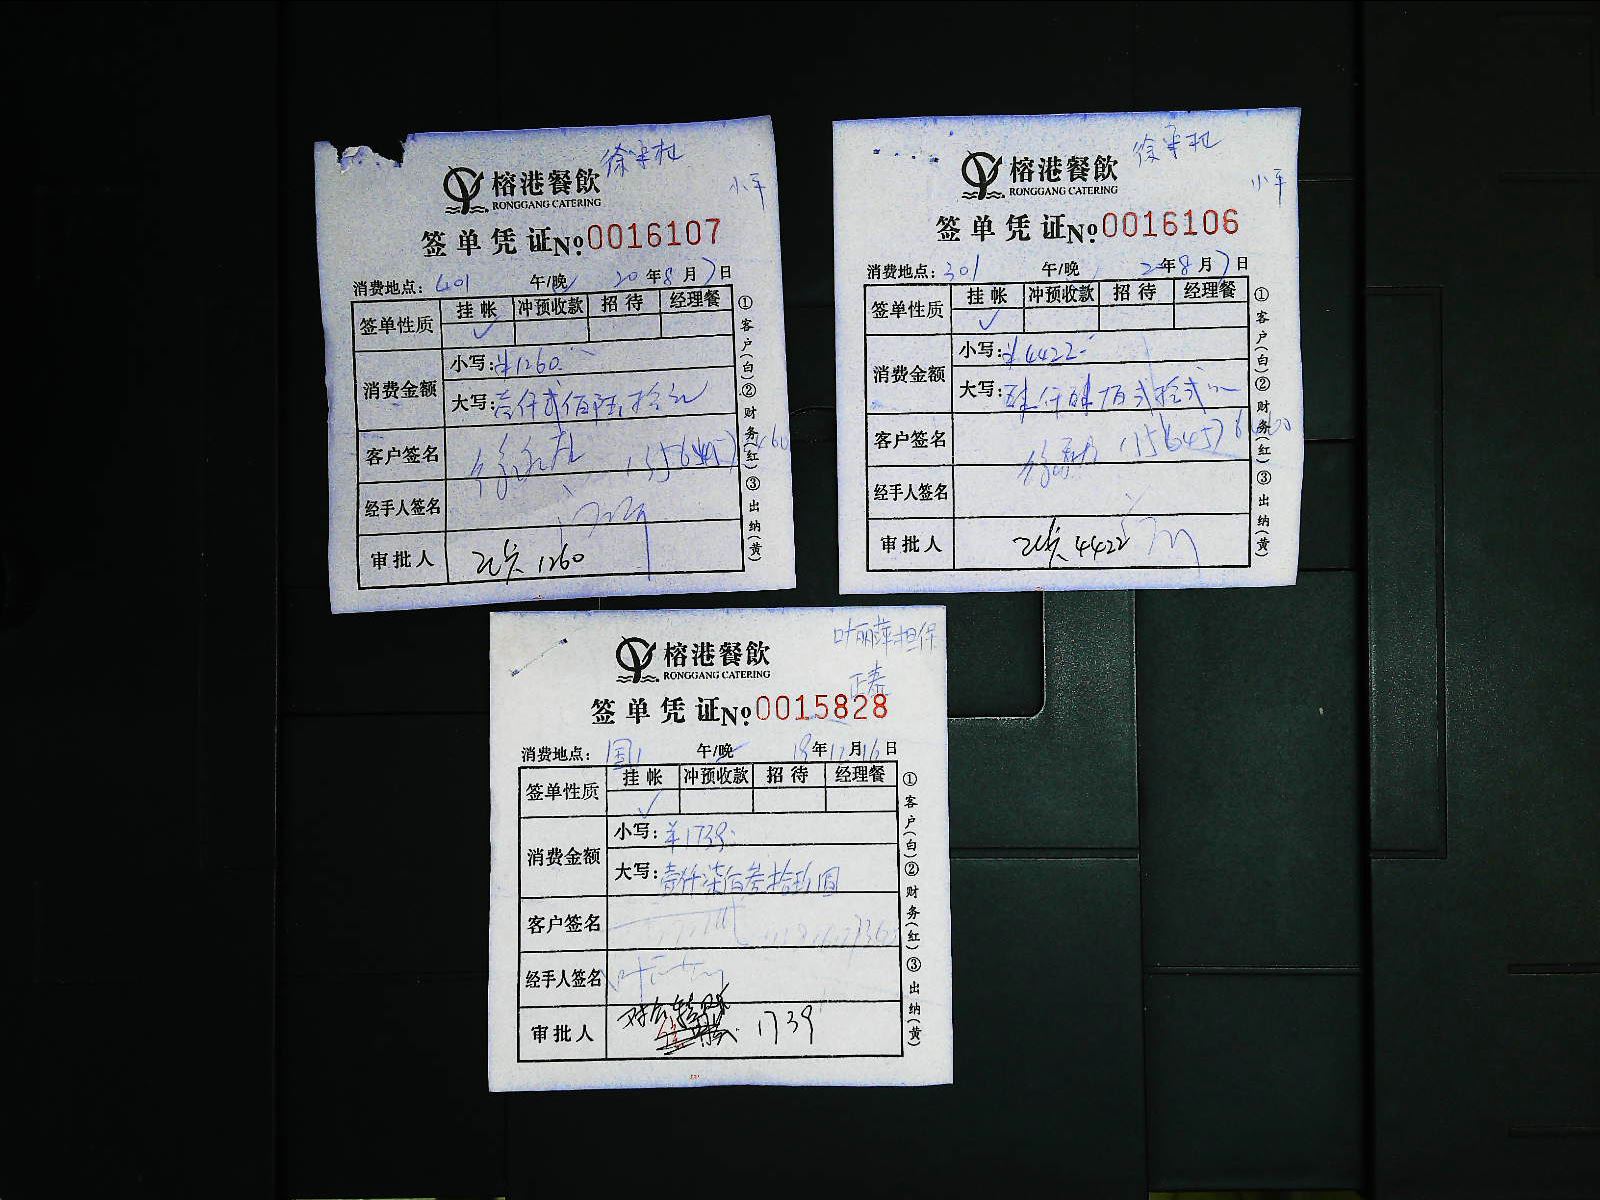 榕港餐飲
RONGGANG CATERING
小平
签单凭证 No. 0016107
消费地点: 401 午/晚 20年8月7日
签单性质 挂帐 冲预收款 招待 经理餐
✓
消费金额 小写: ¥1260.
大写: 壹仟贰佰陆拾元
客户签名
经手人签名
审批人 1260
①客户(白)②财务(红)③出纳(黄)
榕港餐飲
RONGGANG CATERING
小平
签单凭证 No. 0016106
消费地点: 301 午/晚 年8月7日
签单性质 挂帐 冲预收款 招待 经理餐
✓
消费金额 小写: ¥4422.-
大写: 肆仟肆佰贰拾贰元
客户签名
经手人签名
审批人 4422
①客户(白)②财务(红)③出纳(黄)
叶丽萍担保
榕港餐飲
RONGGANG CATERING
签单凭证 No. 0015828
消费地点: 国1 午/晚 19年12月16日
签单性质 挂帐 冲预收款 招待 经理餐
✓
消费金额 小写: ¥1739.
大写: 壹仟柒佰叁拾玖圆
客户签名
经手人签名
审批人 1739
①客户(白)②财务(红)③出纳(黄)